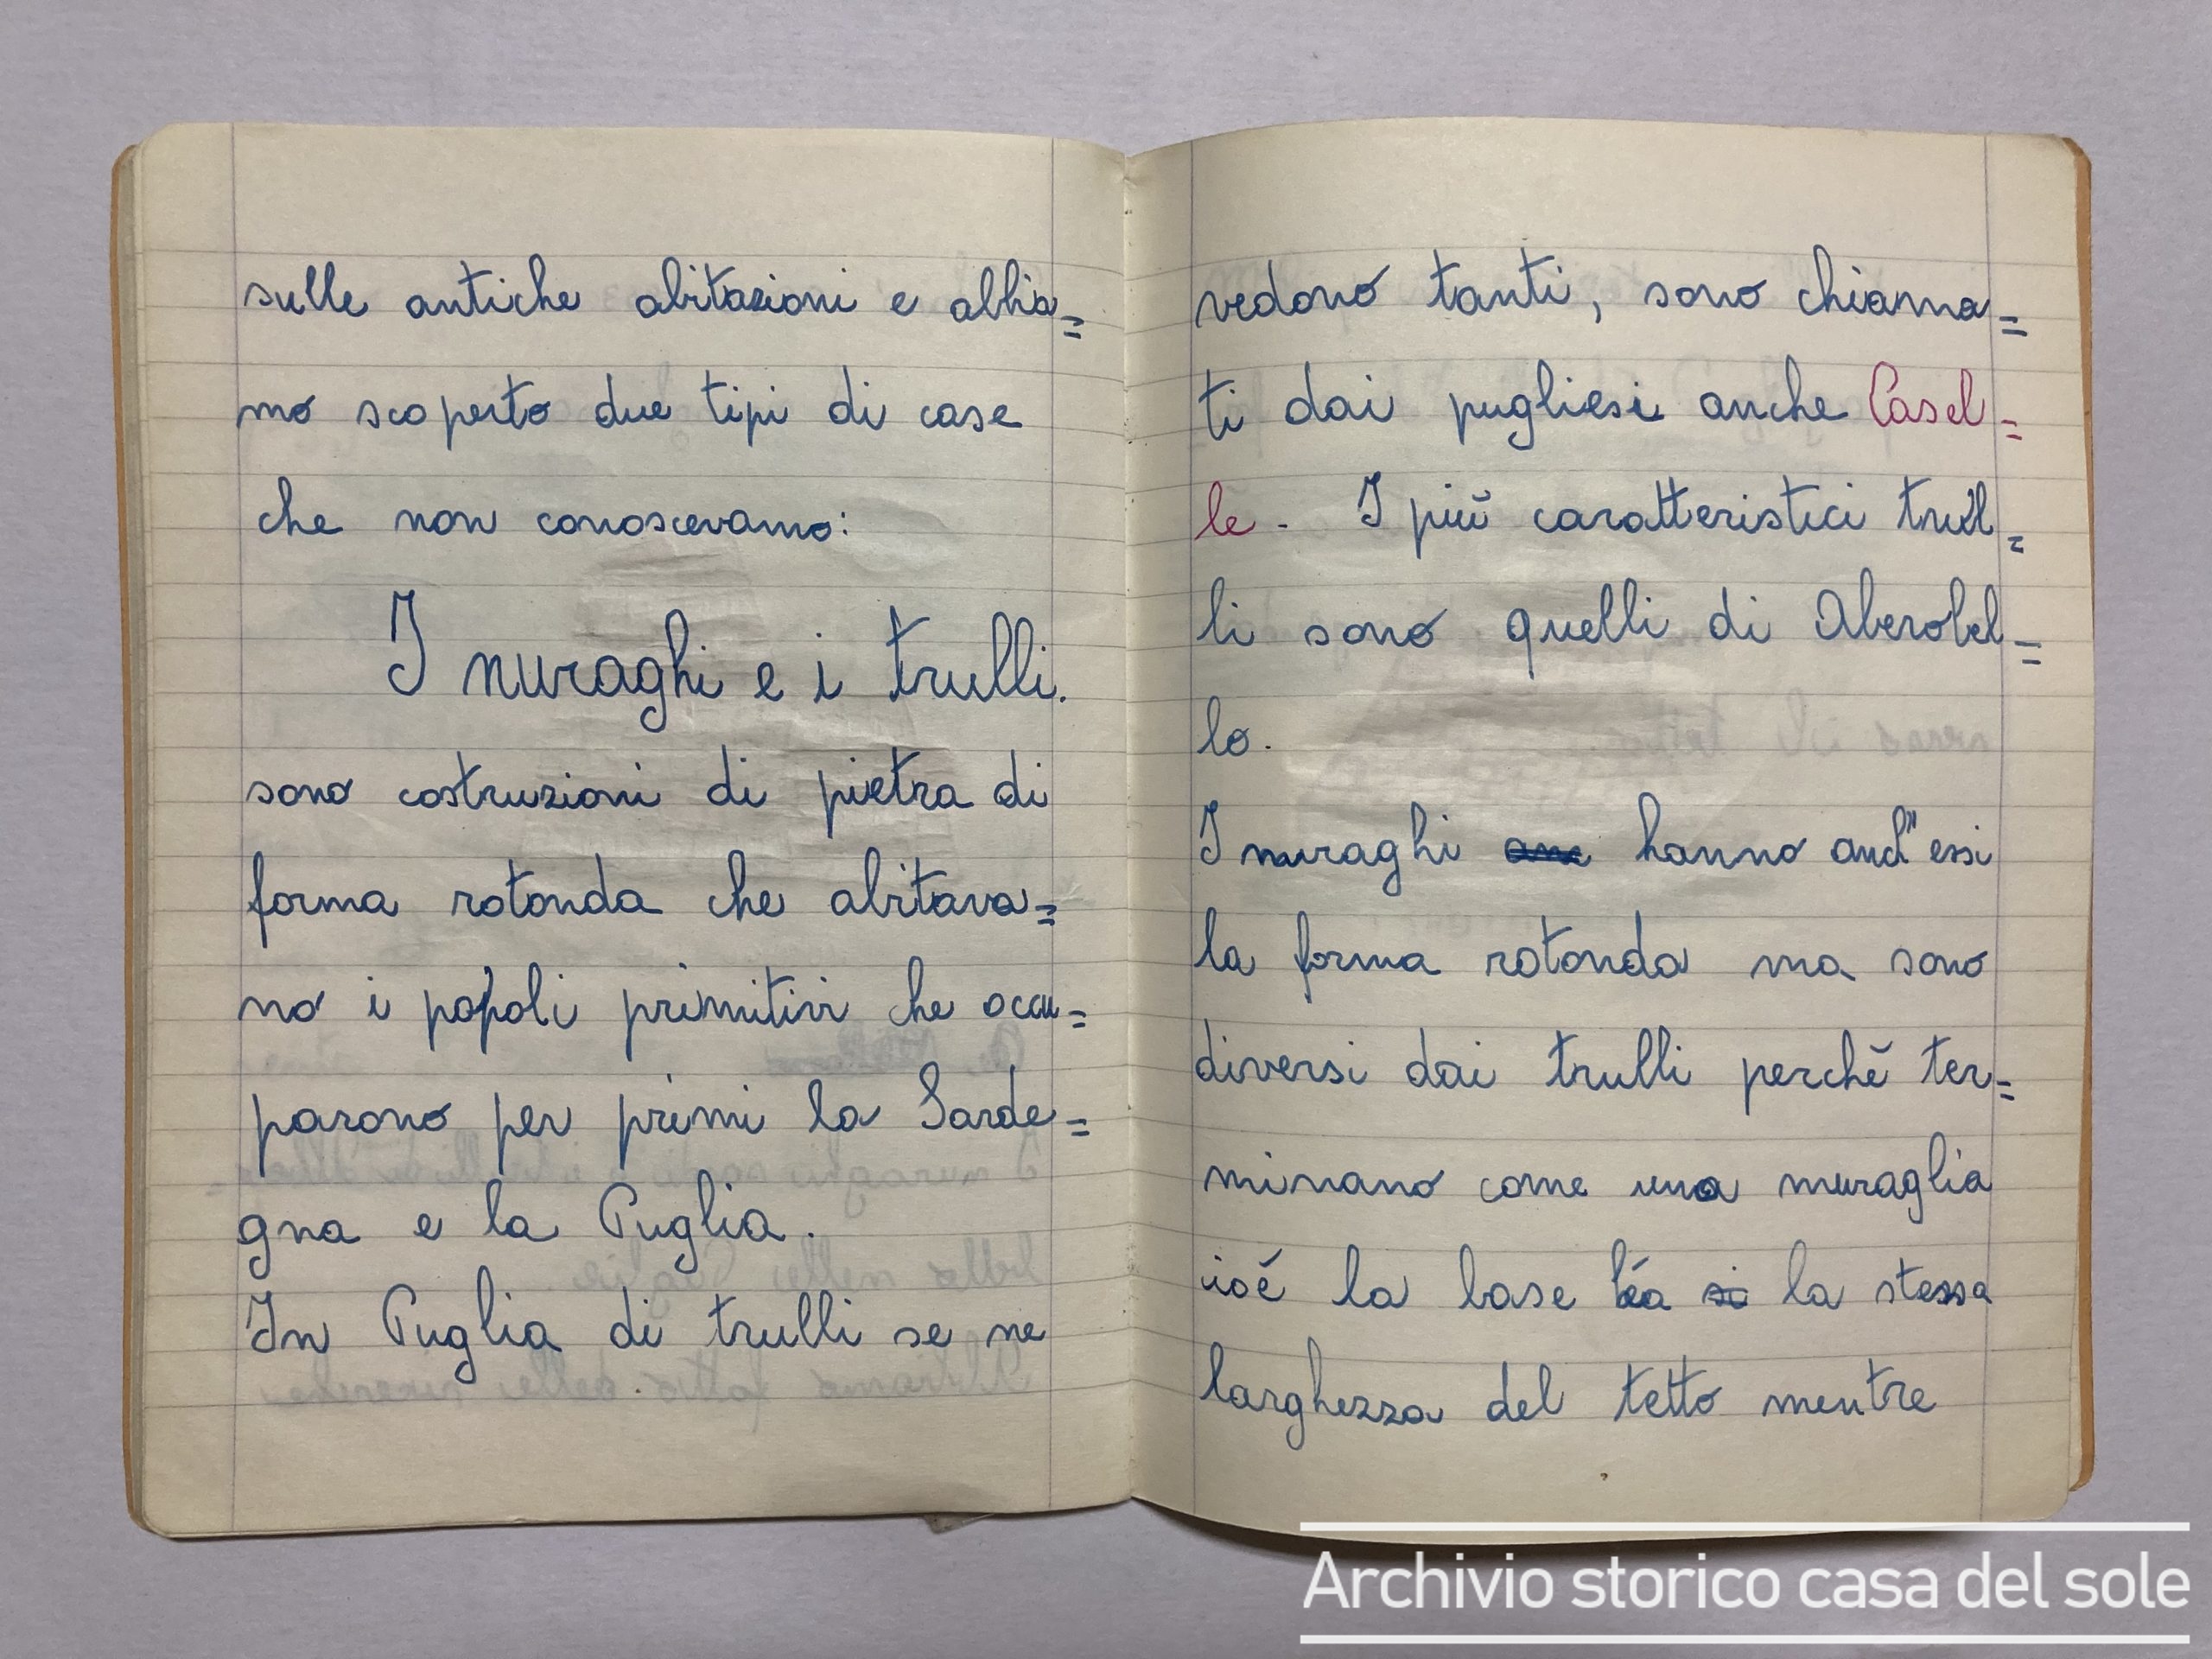 sulle antiche abitazioni e abbia=
mo scoperto due tipi di case
che non conoscevamo:
I nuraghi e i trulli.
sono costruzioni di pietra di
forma rotonda che abitava=
no i popoli primitivi che occu=
parono per primi la Sarde=
gna e la Puglia.
In Puglia di trulli se ne
vedono tanti, sono chiama=
ti dai pugliesi anche Casel=
le. I più caratteristici trul=
li sono quelli di Aberobel=
lo.
I nuraghi hanno anch" essi
la forma rotonda ma sono
diversi dai trulli perchè ter=
minano come una muraglia
cioé la base la stessa
larghezza del tetto mentre
Archivio storico casa del sole